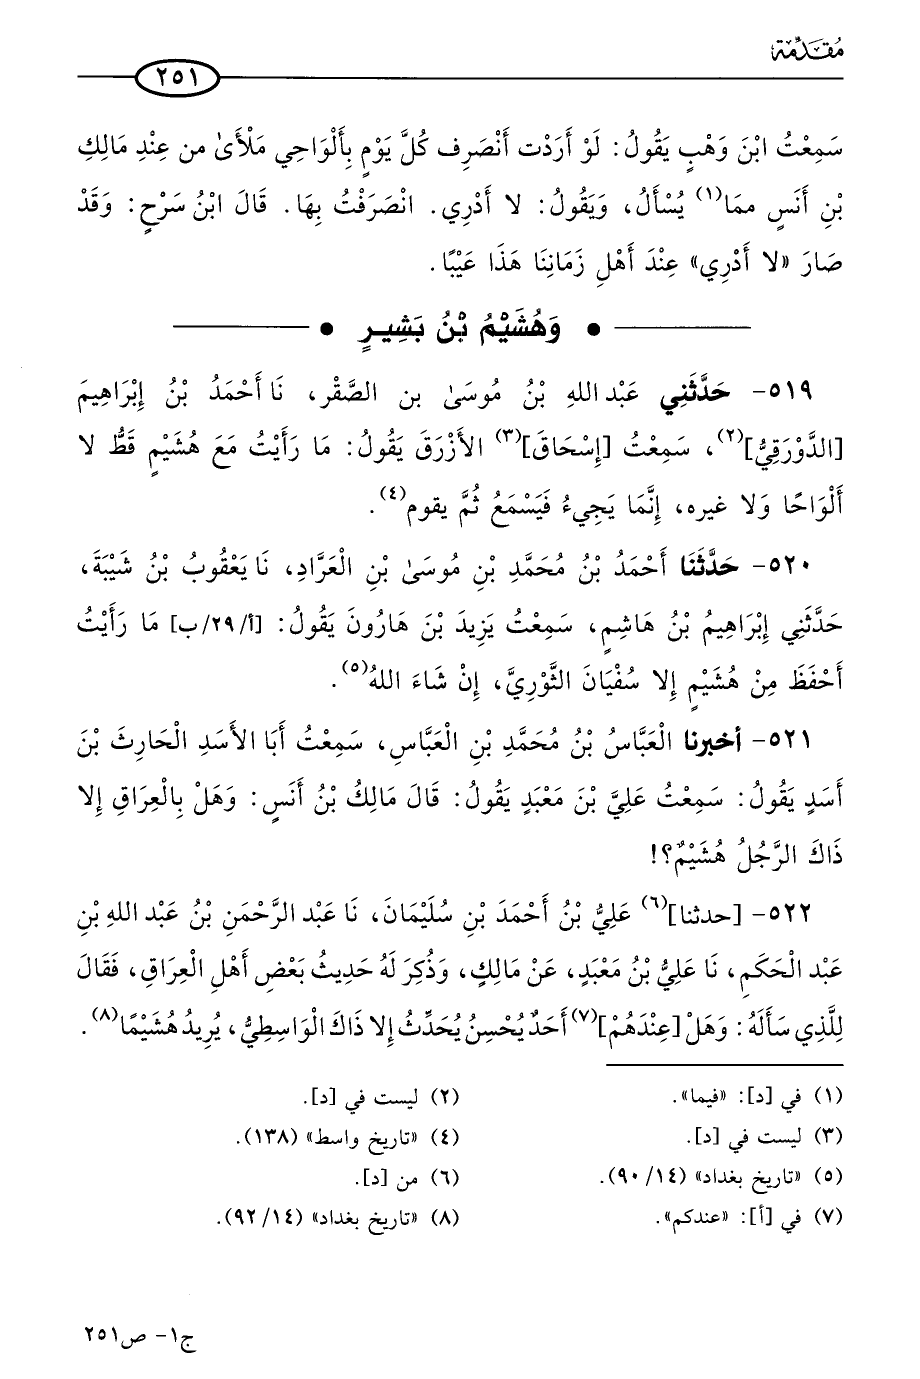 مُقَدِّمَة
٢٥١
سَمِعْتُ ابْنَ وَهْبٍ يَقُولُ: لَوْ أَرَدْت أَنْصَرِف كُلَّ يَوْمٍ بِأَلْوَاحِي مَلْأَىٰ من عِنْدِ مَالِكِ
بْنِ أَنَسٍ ممَا(١) يُسْأَلُ، وَيَقُولُ: لا أَدْرِي. انْصَرَفْتُ بِهَا. قَالَ ابْنُ سَرْحٍ: وَقَدْ
صَارَ «لا أَدْرِي» عِنْدَ أَهْلِ زَمَانِنَا هَذَا عَيْبًا.
• وَهُشَيْمُ بْنُ بَشِيرٍ •
٥١٩- حَدَّثَنِي عَبْد اللهِ بْنُ مُوسَىٰ بن الصَّقْر، نَا أَحْمَدُ بْنُ إِبْرَاهِيمَ
[الدَّوْرَقِيُّ](٢)، سَمِعْتُ [إِسْحَاقَ](٣) الأَزْرَقَ يَقُولُ: مَا رَأَيْتُ مَعَ هُشَيْمٍ قَطُّ لا
أَلْوَاحًا وَلا غيره، إِنَّمَا يَجِيءُ فَيَسْمَعُ ثُمَّ يقوم(٤).
٥٢٠- حَدَّثَنَا أَحْمَدُ بْنُ مُحَمَّدِ بْنِ مُوسَىٰ بْنِ الْعَرَّادِ، نَا يَعْقُوبُ بْنُ شَيْبَةَ،
حَدَّثَنِي إِبْرَاهِيمُ بْنُ هَاشِمٍ، سَمِعْتُ يَزِيدَ بْنَ هَارُونَ يَقُولُ: [أ/٢٩/ب] مَا رَأَيْتُ
أَحْفَظَ مِنْ هُشَيْمٍ إِلا سُفْيَانَ الثَّوْرِيَّ، إِنْ شَاءَ اللهُ(٥).
٥٢١- أخبرنا الْعَبَّاسُ بْنُ مُحَمَّدِ بْنِ الْعَبَّاسِ، سَمِعْتُ أَبَا الأَسَدِ الْحَارِثَ بْنَ
أَسَدٍ يَقُولُ: سَمِعْتُ عَلِيَّ بْنَ مَعْبَدٍ يَقُولُ: قَالَ مَالِكُ بْنُ أَنَسٍ: وَهَلْ بِالْعِرَاقِ إِلا
ذَاكَ الرَّجُلُ هُشَيْمٌ؟!
٥٢٢- [حدثنا](٦) عَلِيُّ بْنُ أَحْمَدَ بْنِ سُلَيْمَانَ، نَا عَبْد الرَّحْمَنِ بْنُ عَبْد اللهِ بْنِ
عَبْد الْحَكَمِ، نَا عَلِيُّ بْنُ مَعْبَدٍ، عَنْ مَالِكٍ، وَذُكِرَ لَهُ حَدِيثُ بَعْضِ أَهْلِ الْعِرَاقِ، فَقَالَ
لِلَّذِي سَأَلَهُ: وَهَلْ [عِنْدَهُمْ](٧) أَحَدٌ يُحْسِنُ يُحَدِّثُ إِلا ذَاكَ الْوَاسِطِيُّ، يُرِيدُ هُشَيْمًا(٨).
(١) في [د]: «فيما». (٢) ليست في [د].
(٣) ليست في [د]. (٤) «تاريخ واسط» (١٣٨).
(٥) «تاريخ بغداد» (١٤/ ٩٠). (٦) من [د].
(٧) في [أ]: «عندكم». (٨) «تاريخ بغداد» (١٤/ ٩٢).
ج١- ص٢٥١